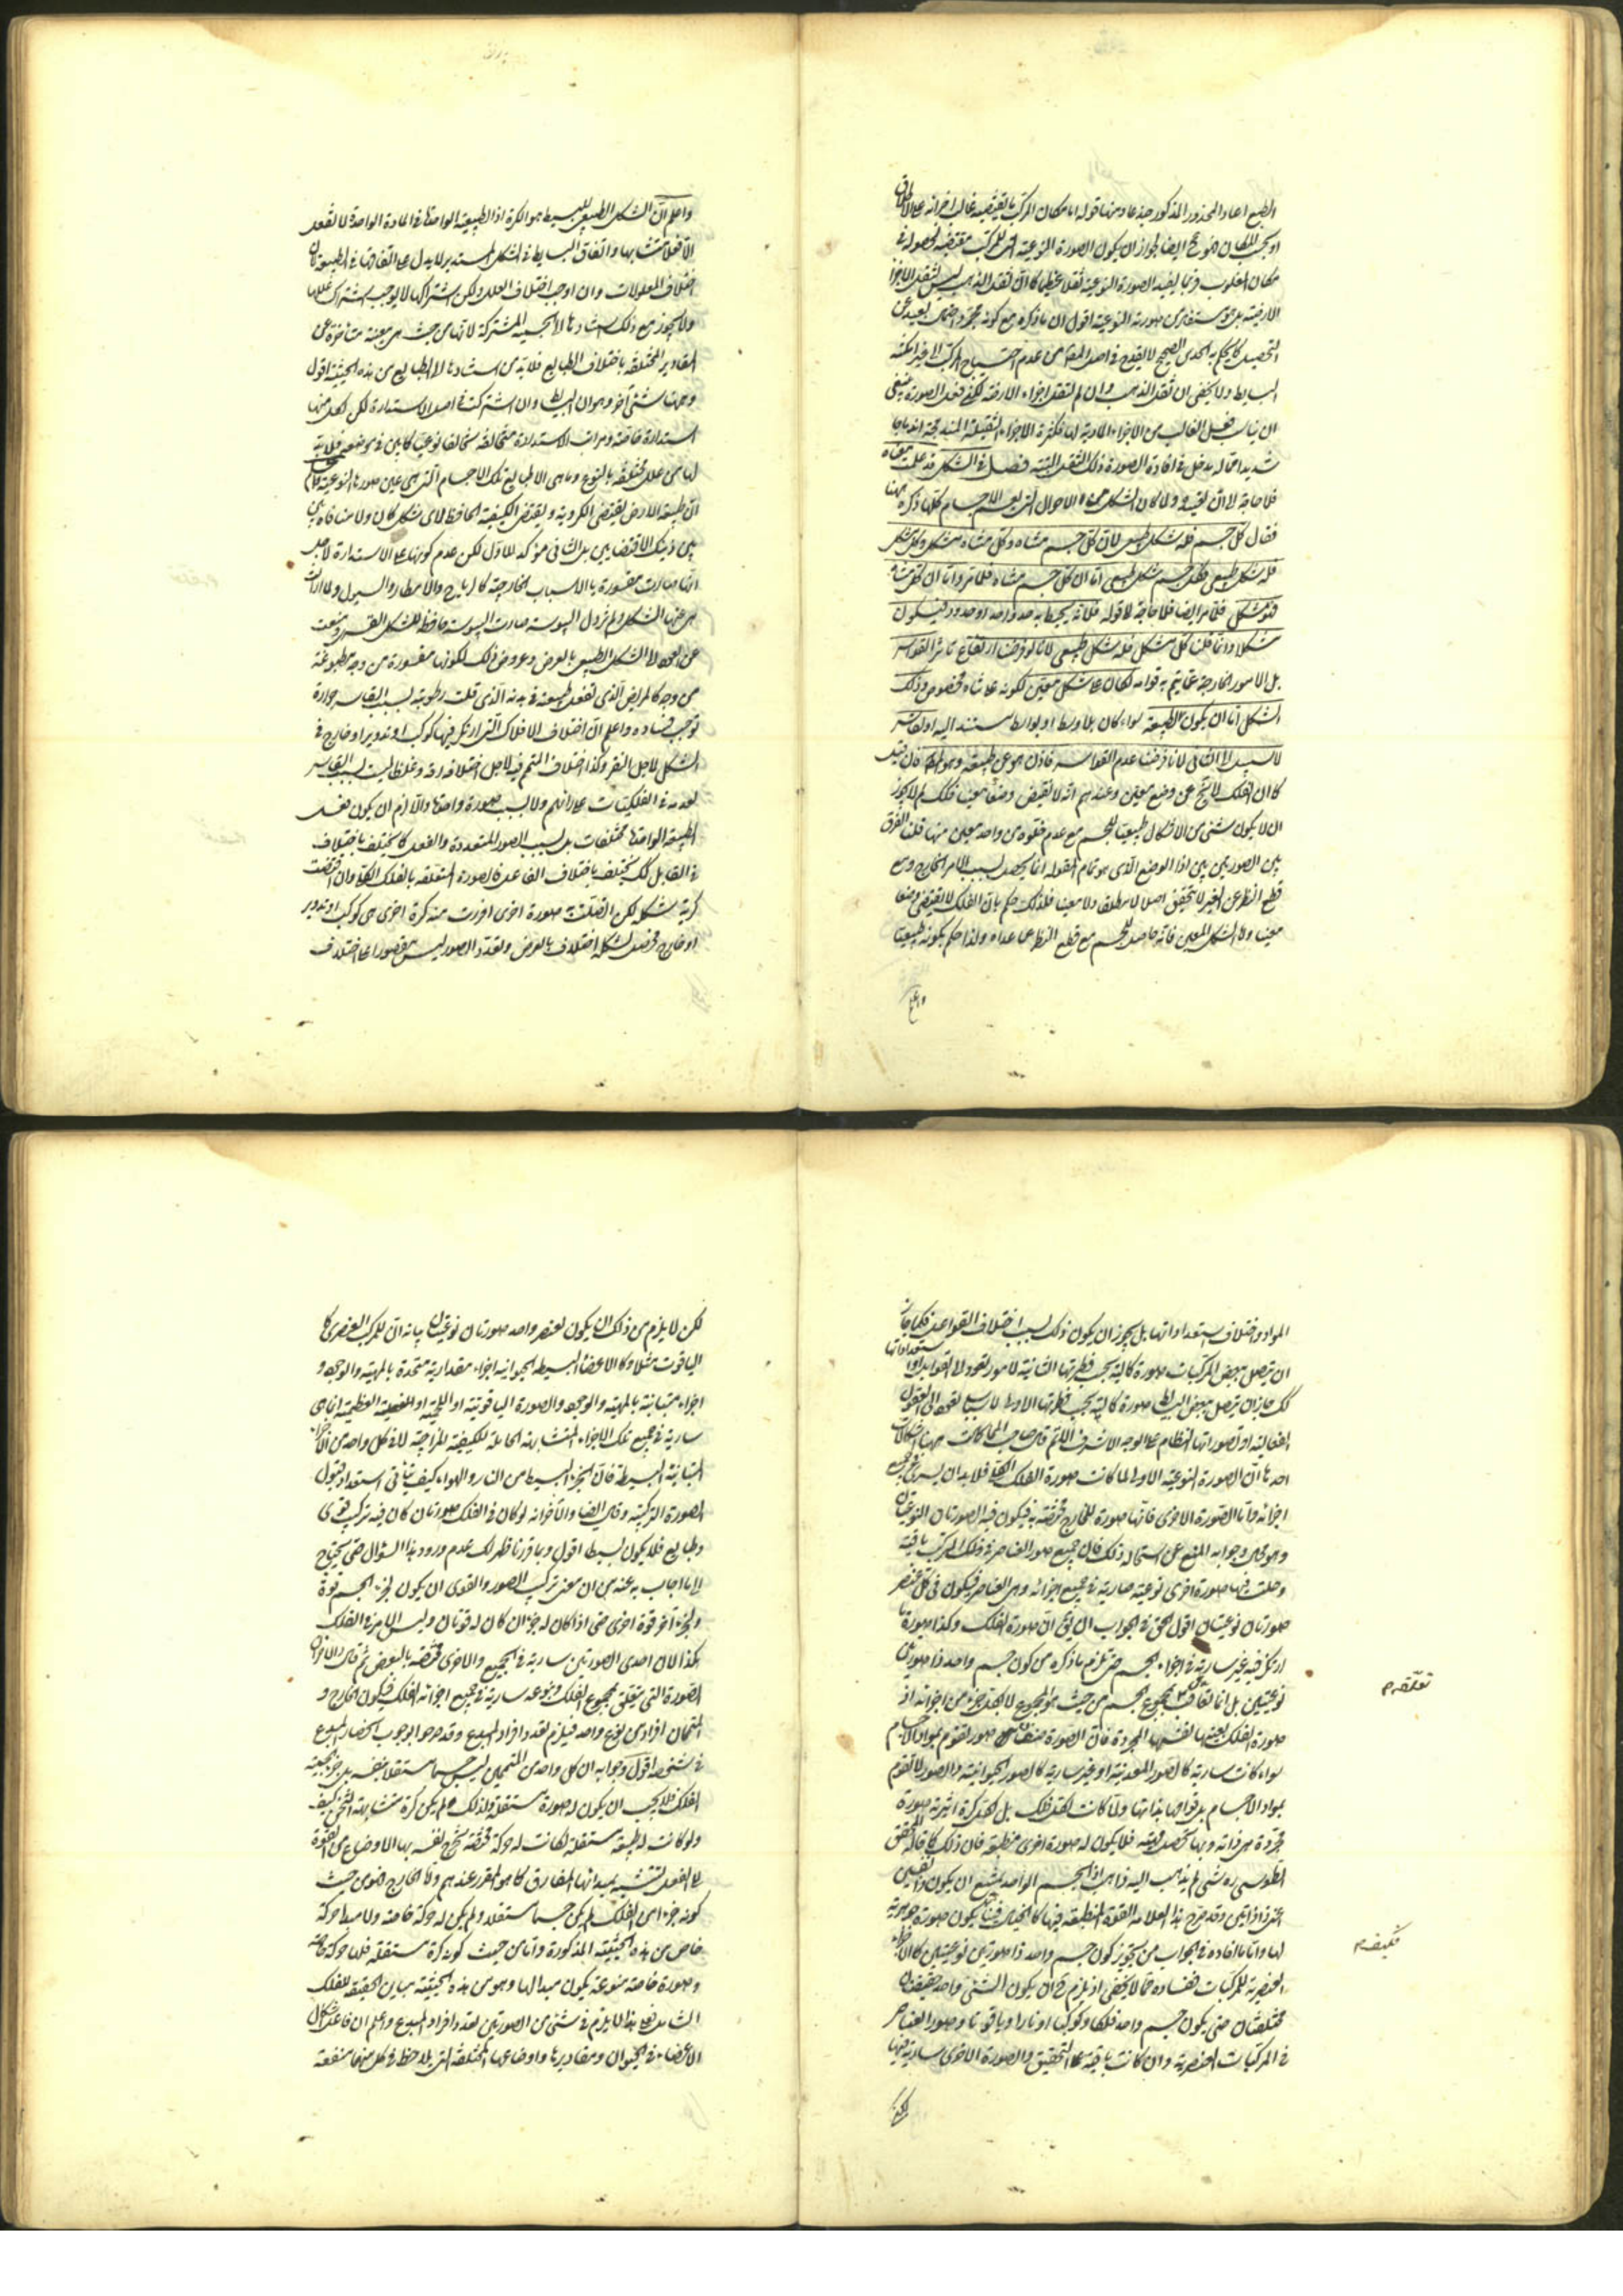 الطبع اعاد المحذور المذكور جذعا ومنها قوله اما مكان المركب ما يقتضيه غالب اجزائه على الاطلاق
مكان المغلوب وربما يفيد الصورة النوعية ثقلا عظيما كما ان ثقل الذهب ليس لثقل الاجزاء
الارضية بل هو مستفاد من صورته النوعية اقول ان ما ذكره مع كونه مجرد احتمال بعيد عن
التحصيل كما يحكم به الحدس الصحيح لا يقدح في اصل المقام من عدم احتياج المركب الى غير امكنة
البسايط ولا يخفى ان ثقل الذهب وان لم لثقل اجزاء الارضية لكن فعل الصورة ينبغي
ان يناسب فعل الغالب من الاجزاء المادية لها فكثرة الاجزاء الثقيلة المندمجة اندماجا
شديدا مما له مدخل في افادة الصورة ذلك الثقل البتة فصل في الشكل قد علمت معناه
فلا حاجة الى ان نعيده ولما كان الشكل من الاحوال التي تعم الاجسام كلها ذكره ههنا
فقال كل جسم فله شكل طبيعي لان كل جسم متناه وكل متناه متشكل وكل متشكل
فله شكل طبيعي فكل جسم شكل طبيعي اما ان كل جسم متناه فلما مر واما ان كل متناه
فهو متشكل فلما مر ايضا فلا حاجة الى قوله فلانه يحيط به حد واحد او حدود فيكون
متشكلا وانما قلنا كل متشكل فله شكل طبيعي لانا لو فرضنا ارتفاع تاثير القواسر
بل الامور الخارجة عما يتم به قوامه لكان على شكل معين لكونه متناه مخصوص وذلك
الشكل اما ان يكون لطبيعته سواء كان بلا وسط او بوسط مستند اليه او لقاسر
لا سبيل الى الثاني لانا فرضنا عدم القواسر فاذن هو عن طبيعته وهو المط فان قيل
كما ان الفلك لا يخ عن وضع معين وعندهم انه لا يقتضى وضعا معينا فلك لم لا يجوز
ان لا يكون شئ من الاشكال طبيعيا للجسم مع عدم خلوه عن واحد معين منها قلنا الفرق
بين الصورتين بين اذا الوضع الذى هو تمام المقولة انما يحصل بسبب الامر الخارج ومع
قطع النظر عن الغير لا تحقق اصلا لا مطلقا ولا معينا فلذلك حكم بان الفلك لا يقتضى وضعا
معينا واما الشكل المعين فانه حاصل للجسم مع قطع النظر عما عداه ولذا حكم بكونه طبيعيا
واعلم
واعلم ان الشكل الطبيعى للبسيط هو الكرة اذ الطبيعة الواحدة في المادة الواحدة لا تفعل
الا فعلا متشابها واتفاق البسايط في الشكل المستدير لا يدل على اتفاقها في الطبيعة لان
اختلاف المعلولات وان اوجب اختلاف العلل ولكن اشتراكها لا يوجب اشتراك عللها
ولا يجوز مع ذلك اسنادها الى الجسمية المشتركة لانها من حيث هى معينة متاخرة عن
المقادير المختلفة باختلاف الطبايع فلا بد من اسنادها الى الطبايع من هذه الحيثية اقول
وههنا شئ آخر وهو ان البسايط وان اشتركت في اصل الاستدارة لكن لكل منها
استدارة خاصة ومراتب الاستدارة متخالفة تخالفا نوعيا كما بين في موضعه فلا بد
لها من علل مختلفة بالنوع وما هى الا طبايع تلك الاجسام التى هى عين صورها النوعية
ان طبيعة الارض تقتضى الكروية وتقتضى الكيفية الحافظة لاى شكل كان ولا منافاة بين
بين ذينك الاقتضايين بل الثانى مؤكد للاول لكن عدم كونها على الاستدارة لاجل
انها صارت مقسورة بالاسباب الخارجة كالرياح والامطار والسيول ولما ازالت
هى عنها الشكل ولم تزول اليبوسة صارت اليبوسة حافظة للشكل القسرى ومنعت
عن العود الى الشكل الطبيعى بالعرض وعروض ذلك لكونها مقسورة من وجه مطبوعة
من وجه كالمريض الذى تفعل طبيعته في بدنه الذى قلت رطوبته بسبب القاسر حرارة
توجب فساده واعلم ان اختلاف الافلاك التى ارتكز فيها كوكب او تدوير او خارج في
الشكل لاجل النقر وكذا اختلاف المتمم فيه لاجل اختلافه رقة وغلظا ليست بسبب القاسر
لعدمه في الفلكيات على رايهم ولا بسبب صورة واحدة والا لزم ان يكون فعل
الطبيعة الواحدة مختلفات بل بسبب الصور المتعددة والفعل كما يختلف باختلاف
القابل كك يختلف باختلاف الفاعل فالصورة المتعلقة بالفلك الكلى وان اقتضت
كرية شكله لكن اتصلت به صورة اخرى افرزت منه كرة اخرى هى كوكب او تدوير
او خارج فحصل لشكله اختلاف بالعرض وتعدد الصور ليس مقصورا على اختلاف
المواد واختلاف استعداداتها بل يجوز ان يكون ذلك بسبب اختلاف القواعل فكما جاز
ان يتصل ببعض المركبات صورة كمالية بحسب فطرتها الثانية لامور تعود الى القوابل
استعداداتها
كك جاز ان يتصل ببعض البسايط صورة كمالية بحسب فطرتها الاولى لاسباب تعود الى العقول
الفعالة او تصوراتها النظام على الوجه الاشرف الاتم قال صاحب المحاكمات ههنا اشكالات
احدها ان الصورة النوعية الاولى لما كانت صورة الفلك الكلى فلا بد ان يسرى في جميع
اجزائه واما الصورة الاخرى فانها صورة للخارج مختصة به فيكون فيه الصورتان النوعيتان
وهو مح وجوابه المنع عن استحالة ذلك فان جميع صور العناصر في ذلك المركب باقية
وحلت فيها صورة اخرى نوعية سارية في جميع اجزائه وهى العناصر فيكون في كل عنصر
صورتان نوعيتان اقول الحق في الجواب ان يق ان صورة الفلك وكذا صورة ما
ارتكز فيه غير سارية في اجزاء الجسم حتى يلزم ما ذكره من كون جسم واحد ذا صورتين
نوعيتين بل انما تعلقت بمجموع الجسم من حيث هو المجموع لا بكل جزء من اجزائه اذ
صورة الفلك بعينها نفسها المجردة فان الصورة صنفان صور تقوم بمواد الاجسام
سواء كانت سارية كالصور المعدنية او غير سارية كالصور الحيوانية والصور لا تقوم
بمواد الاجسام بل قوامها بذاتها ولما كانت لكل فلك بل لكل كرة اثيرية صورة
مجردة هى ذاته وبها تحصله فلا يكون له صورة اخرى منطبعة فان ذلك كما قاله المحقق
الطوسى ره شئ لم يذهب اليه ذاهب اذ الجسم الواحد يمتنع ان يكون ذا نفسين
اعنى ذا ذاتين وقد صرح بذا العلامة القوة المنطبعة فيها كالخيال فينا يكون صورة جوهرية
لها واما ما افاده في الجواب من تجويز كون جسم واحد ذا صورتين نوعيتين كالاجزاء
العنصرية للمركبات ففساده مما لا يخفى اذ يلزم ح ان يكون الشئ واحد حقيقتان
مختلفتان حتى يكون جسم واحد فلكا وكوكبا او نارا وياقوتا وصور العناصر
في المركبات العنصرية وان كانت باقية على التحقيق والصورة الاخرى سارية فيها
لكن
لكن لا يلزم من ذلك ان يكون لعنصر واحد صورتان نوعيتان بيانه ان للمركب العنصرى كا
الياقوت مثلا وكالاعضاء البسيطة الحيوانية اجزاء مقدارية متحدة بالمهية والوجود و
اجزاء متباينة بالمهية والوجود والصورة الياقوتية او اللحمية او العظمية انما هى
سارية في جميع تلك الاجزاء المتشابهة الحاملة للكيفية المزاجية لا في كل واحد من الاجزاء
المتباينة البسيطة فان الجزء البسيط من النار والهواء كيف يتأتى استعداد قبول
الصورة التركيبية وقال ايضا والآخر انه لو كان في الفلك صورتان كان فيه تركيب قوى
وطبايع فلا يكون بسيطا اقول وبما قررنا ظهر لك عدم ورود هذا السؤال حتى يحتاج
الى ما اجاب به عنه من ان معنى تركيب الصور والقوى ان يكون لجزء الجسم قوة
ولجزء آخر قوة اخرى حتى اذا كان له جزءان كان له قوتان وليس الامر في الفلك
هكذا لان احدى الصورتين سارية في الجميع والاخرى مختصة بالبعض ثم قال والآخر ان
الصورة التى تتعلق بمجموع الفلك ونوعه سارية في جميع اجزائه الفلك فيكون الخارج و
المتممان افرادا من نوع واحد فيلزم تعدد افراد المبدع وقد صرحوا بوجوب انحصار المبدع
في شخصه اقول وجوابه ان كل واحد من المتممين ليس جسما مستقلا بنفسه بل جزء بعينه
الفلك فلا يجب ان يكون له صورة مستقلة ولذلك لم يكن كرة متشابهة الثخن كيف
ولو كانت له طبيعة مستقلة لكانت له حركة مختصة تخرج نفسه بها الاوضاع من القوة
الى الفعل تشبيه بمبدئها المفارق كما هو المقرر عندهم واما الخارج فهو من حيث
كونه جزءا من الفلك لم يكن جسما مستقلا ولم يكن له حركة خاصة ولا مبدا حركة
خاص من هذه الحيثية المذكورة واما من حيث كونه كرة مستقلة فلها حركة خاصة
وصورة خاصة منوعة يكون مبدا لها وهو من هذه الحيثية مباين الحقيقة للفلك
الشامل فعلى هذا لا يلزم في شئ من الصورتين تعدد افراد المبدع واعلم ان فاعل اشكال
الاعضاء في الحيوان ومقاديرها واوضاعها المختلفة التى يلاحظ في كل منها منفعة